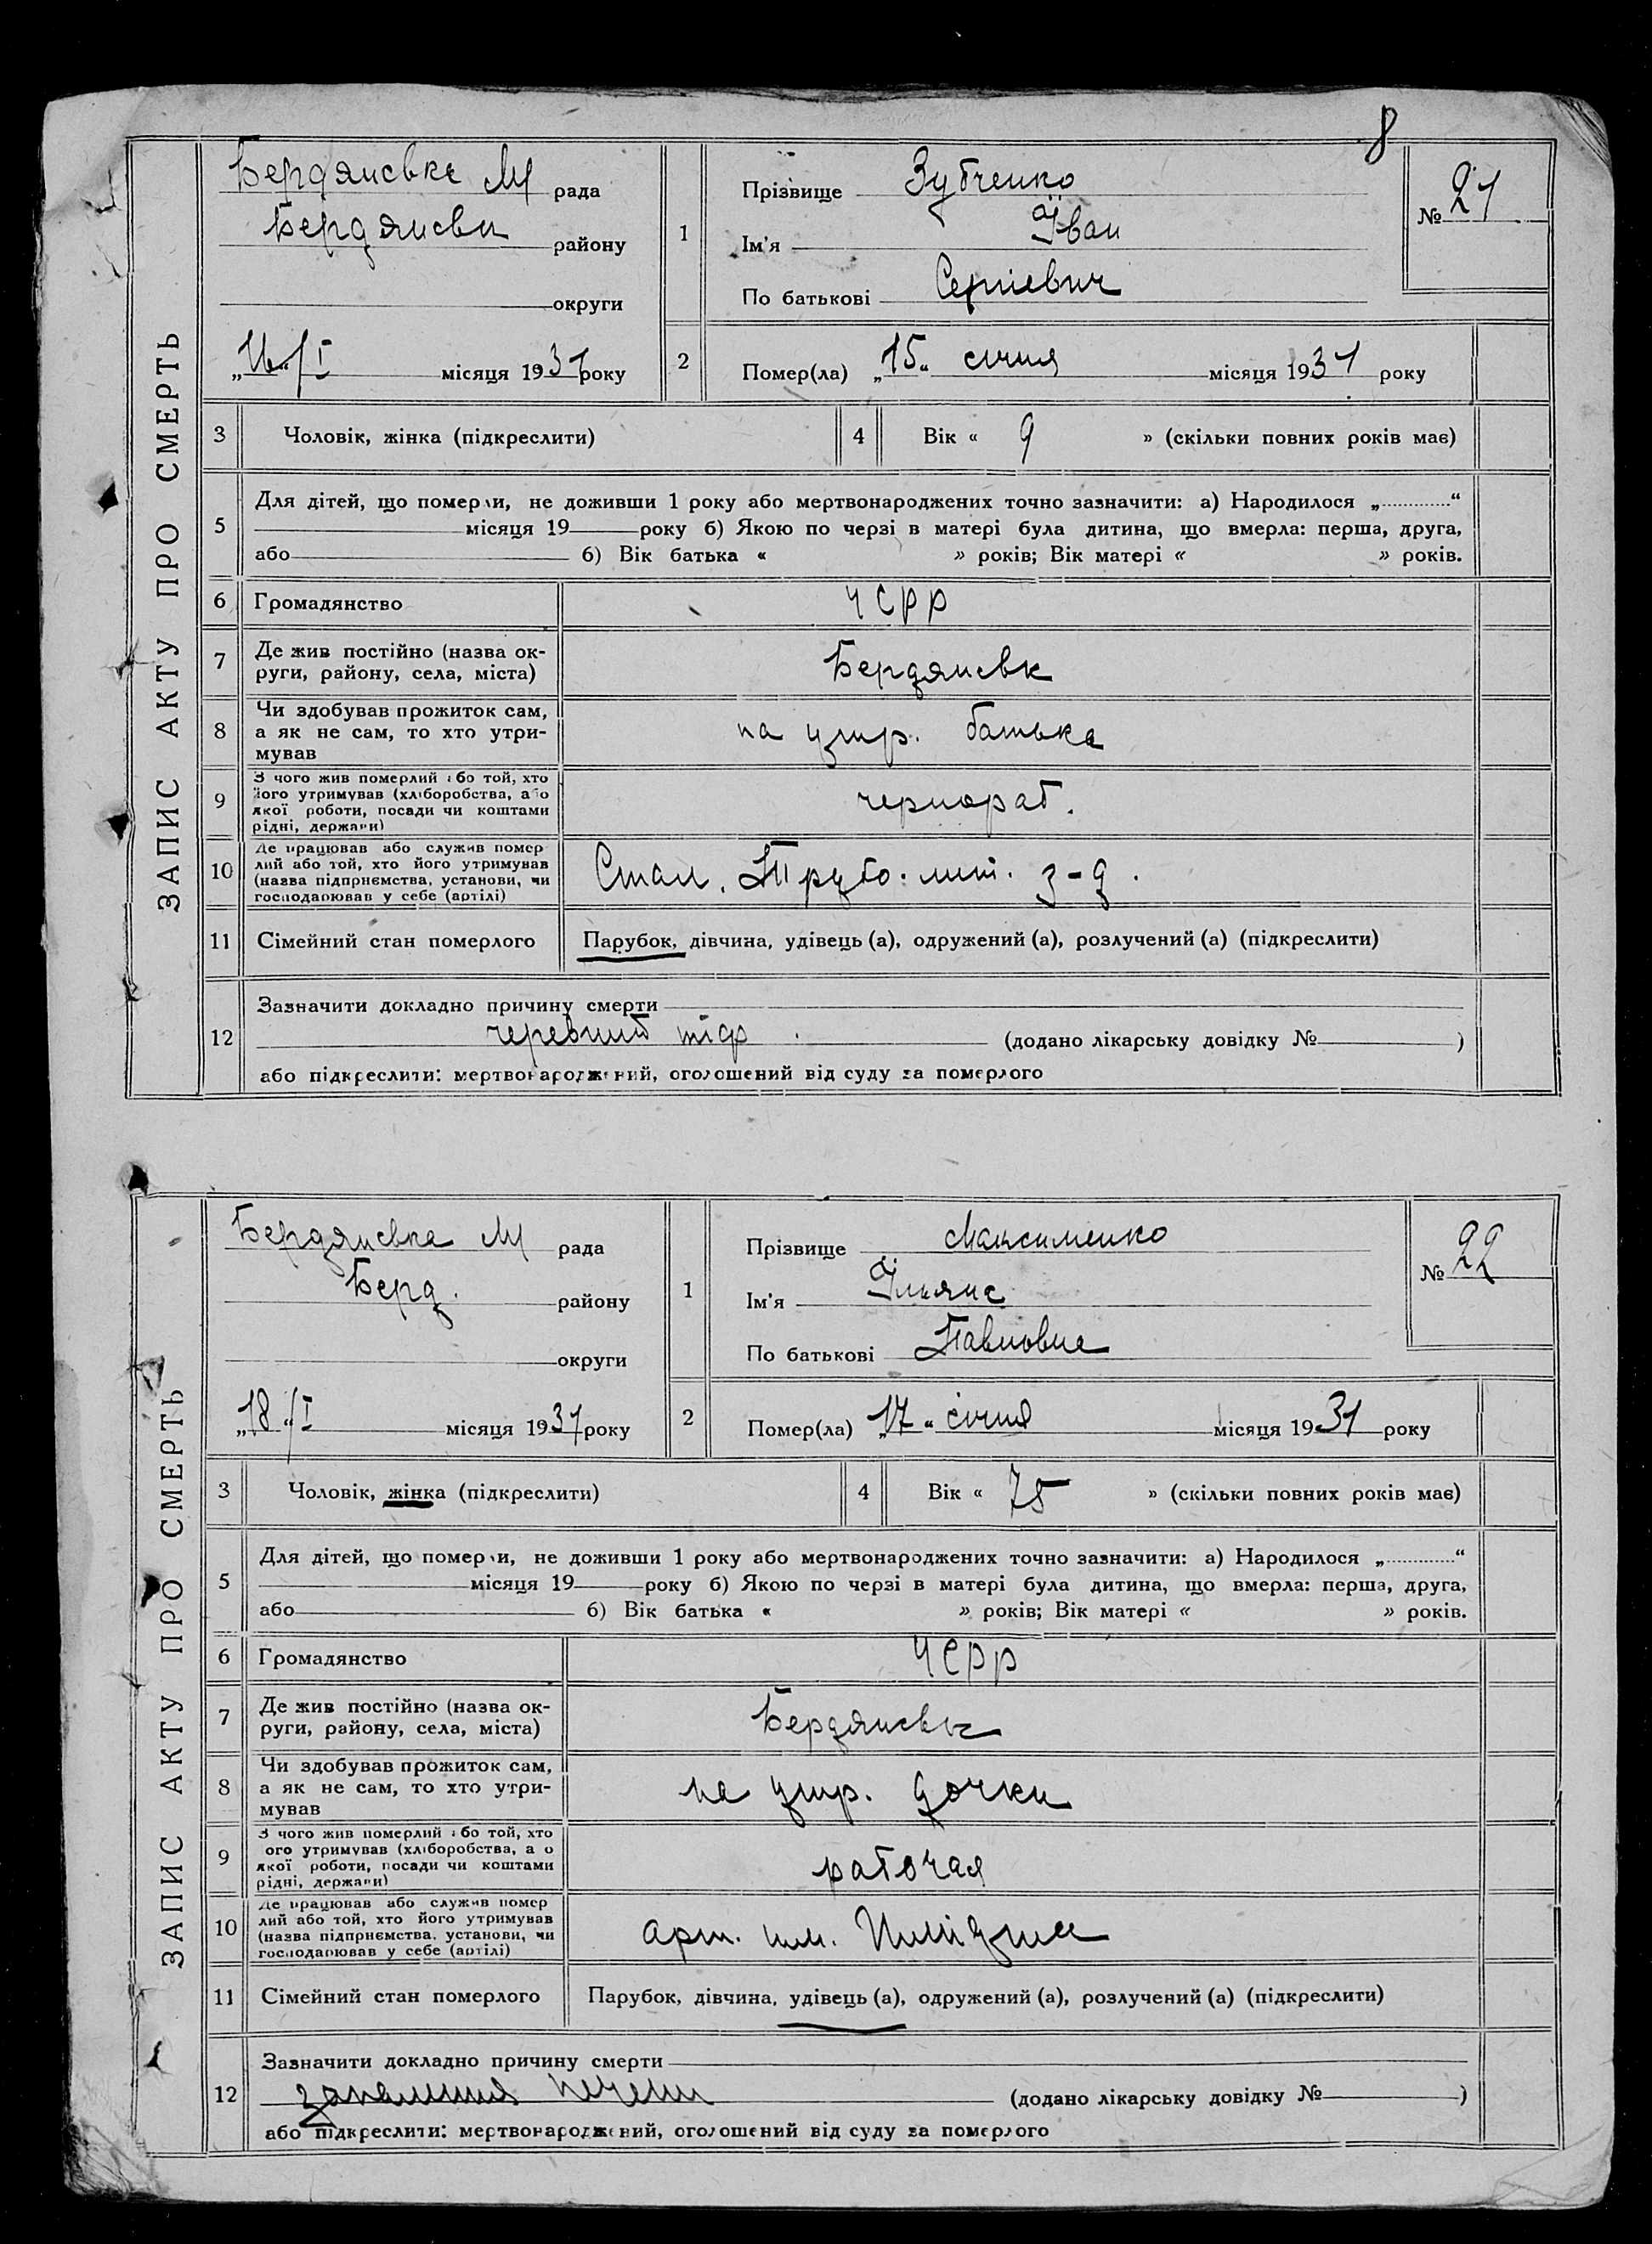 8
ЗАПИС АКТУ ПРО СМЕРТЬ
Бердянська М рада
Бердянськ району
округи
„16“/I місяця 1931 року
1
Прізвище Зубченко
Ім'я Іван
По батькові Сергієвич
№ 21
2
Помер(ла) „15“ січня місяця 1931 року
3 Чоловік, жінка (підкреслити)
4 Вік « 9 » (скільки повних років має)
5
Для дітей, що померли, не доживши 1 року або мертвонароджених точно зазначити: а) Народилося „ “
місяця 19 року б) Якою по черзі в матері була дитина, що вмерла: перша, друга,
або б) Вік батька « » років; Вік матері « » років.
6 Громадянство УСРР
7 Де жив постійно (назва ок-
руги, району, села, міста) Бердянськ
8 Чи здобував прожиток сам,
а як не сам, то хто утри-
мував
на утр. батька
9 З чого жив померлий або той, хто
його утримував (хліборобства, або
якої роботи, посади чи коштами
рідні, держави)
чернораб.
10 Де працював або служив помер
лий або той, хто його утримував
(назва підприємства, установи, чи
господарював у себе (артілі)
Стал. Трубо. лит. з-д.
11 Сімейний стан померлого Парубок, дівчина, удівець (а), одружений (а), розлучений (а) (підкреслити)
12
Зазначити докладно причину смерти
черевний тіф (додано лікарську довідку № )
або підкреслити: мертвонароджений, оголошений від суду за померлого
ЗАПИС АКТУ ПРО СМЕРТЬ
Бердянська М рада
Берд. району
округи
„18“/I місяця 1931 року
1
Прізвище Максименко
Ім'я Ульяна
По батькові Павловна
№ 22
2
Помер(ла) „17“ січня місяця 1931 року
3 Чоловік, жінка (підкреслити)
4 Вік « 75 » (скільки повних років має)
5
Для дітей, що померли, не доживши 1 року або мертвонароджених точно зазначити: а) Народилося „ “
місяця 19 року б) Якою по черзі в матері була дитина, що вмерла: перша, друга,
або б) Вік батька « » років; Вік матері « » років.
6 Громадянство УСРР
7 Де жив постійно (назва ок-
руги, району, села, міста) Бердянськ
8 Чи здобував прожиток сам,
а як не сам, то хто утри-
мував
на утр. дочки
9 З чого жив померлий або той, хто
його утримував (хліборобства, або
якої роботи, посади чи коштами
рідні, держави)
рабочая
10 Де працював або служив помер
лий або той, хто його утримував
(назва підприємства, установи, чи
господарював у себе (артілі)
арт. им.
11 Сімейний стан померлого Парубок, дівчина, удівець (а), одружений (а), розлучений (а) (підкреслити)
12
Зазначити докладно причину смерти
запалення печени (додано лікарську довідку № )
або підкреслити: мертвонароджений, оголошений від суду за померлого